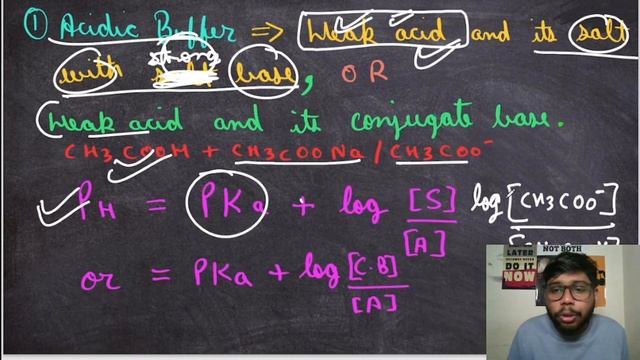 ① Acidic Buffer ⇒ Weak acid and its salt
with strong base, OR
Weak acid and its conjugate base.
CH3COOH + CH3COONa / CH3COO⁻
PH = PKa + log [S]/[A] log [CH3COO⁻]
or = PKa + log [C.B]/[A]
LATER
DO IT
NOW
NOT BOTH